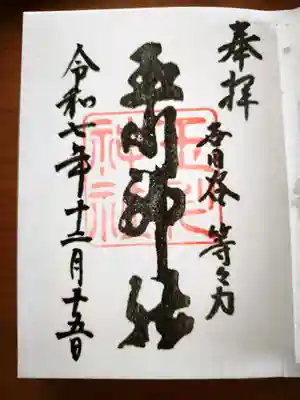 奉拝
世田谷 等々力
玉川神社
玉川神社
令和七年十二月十五日